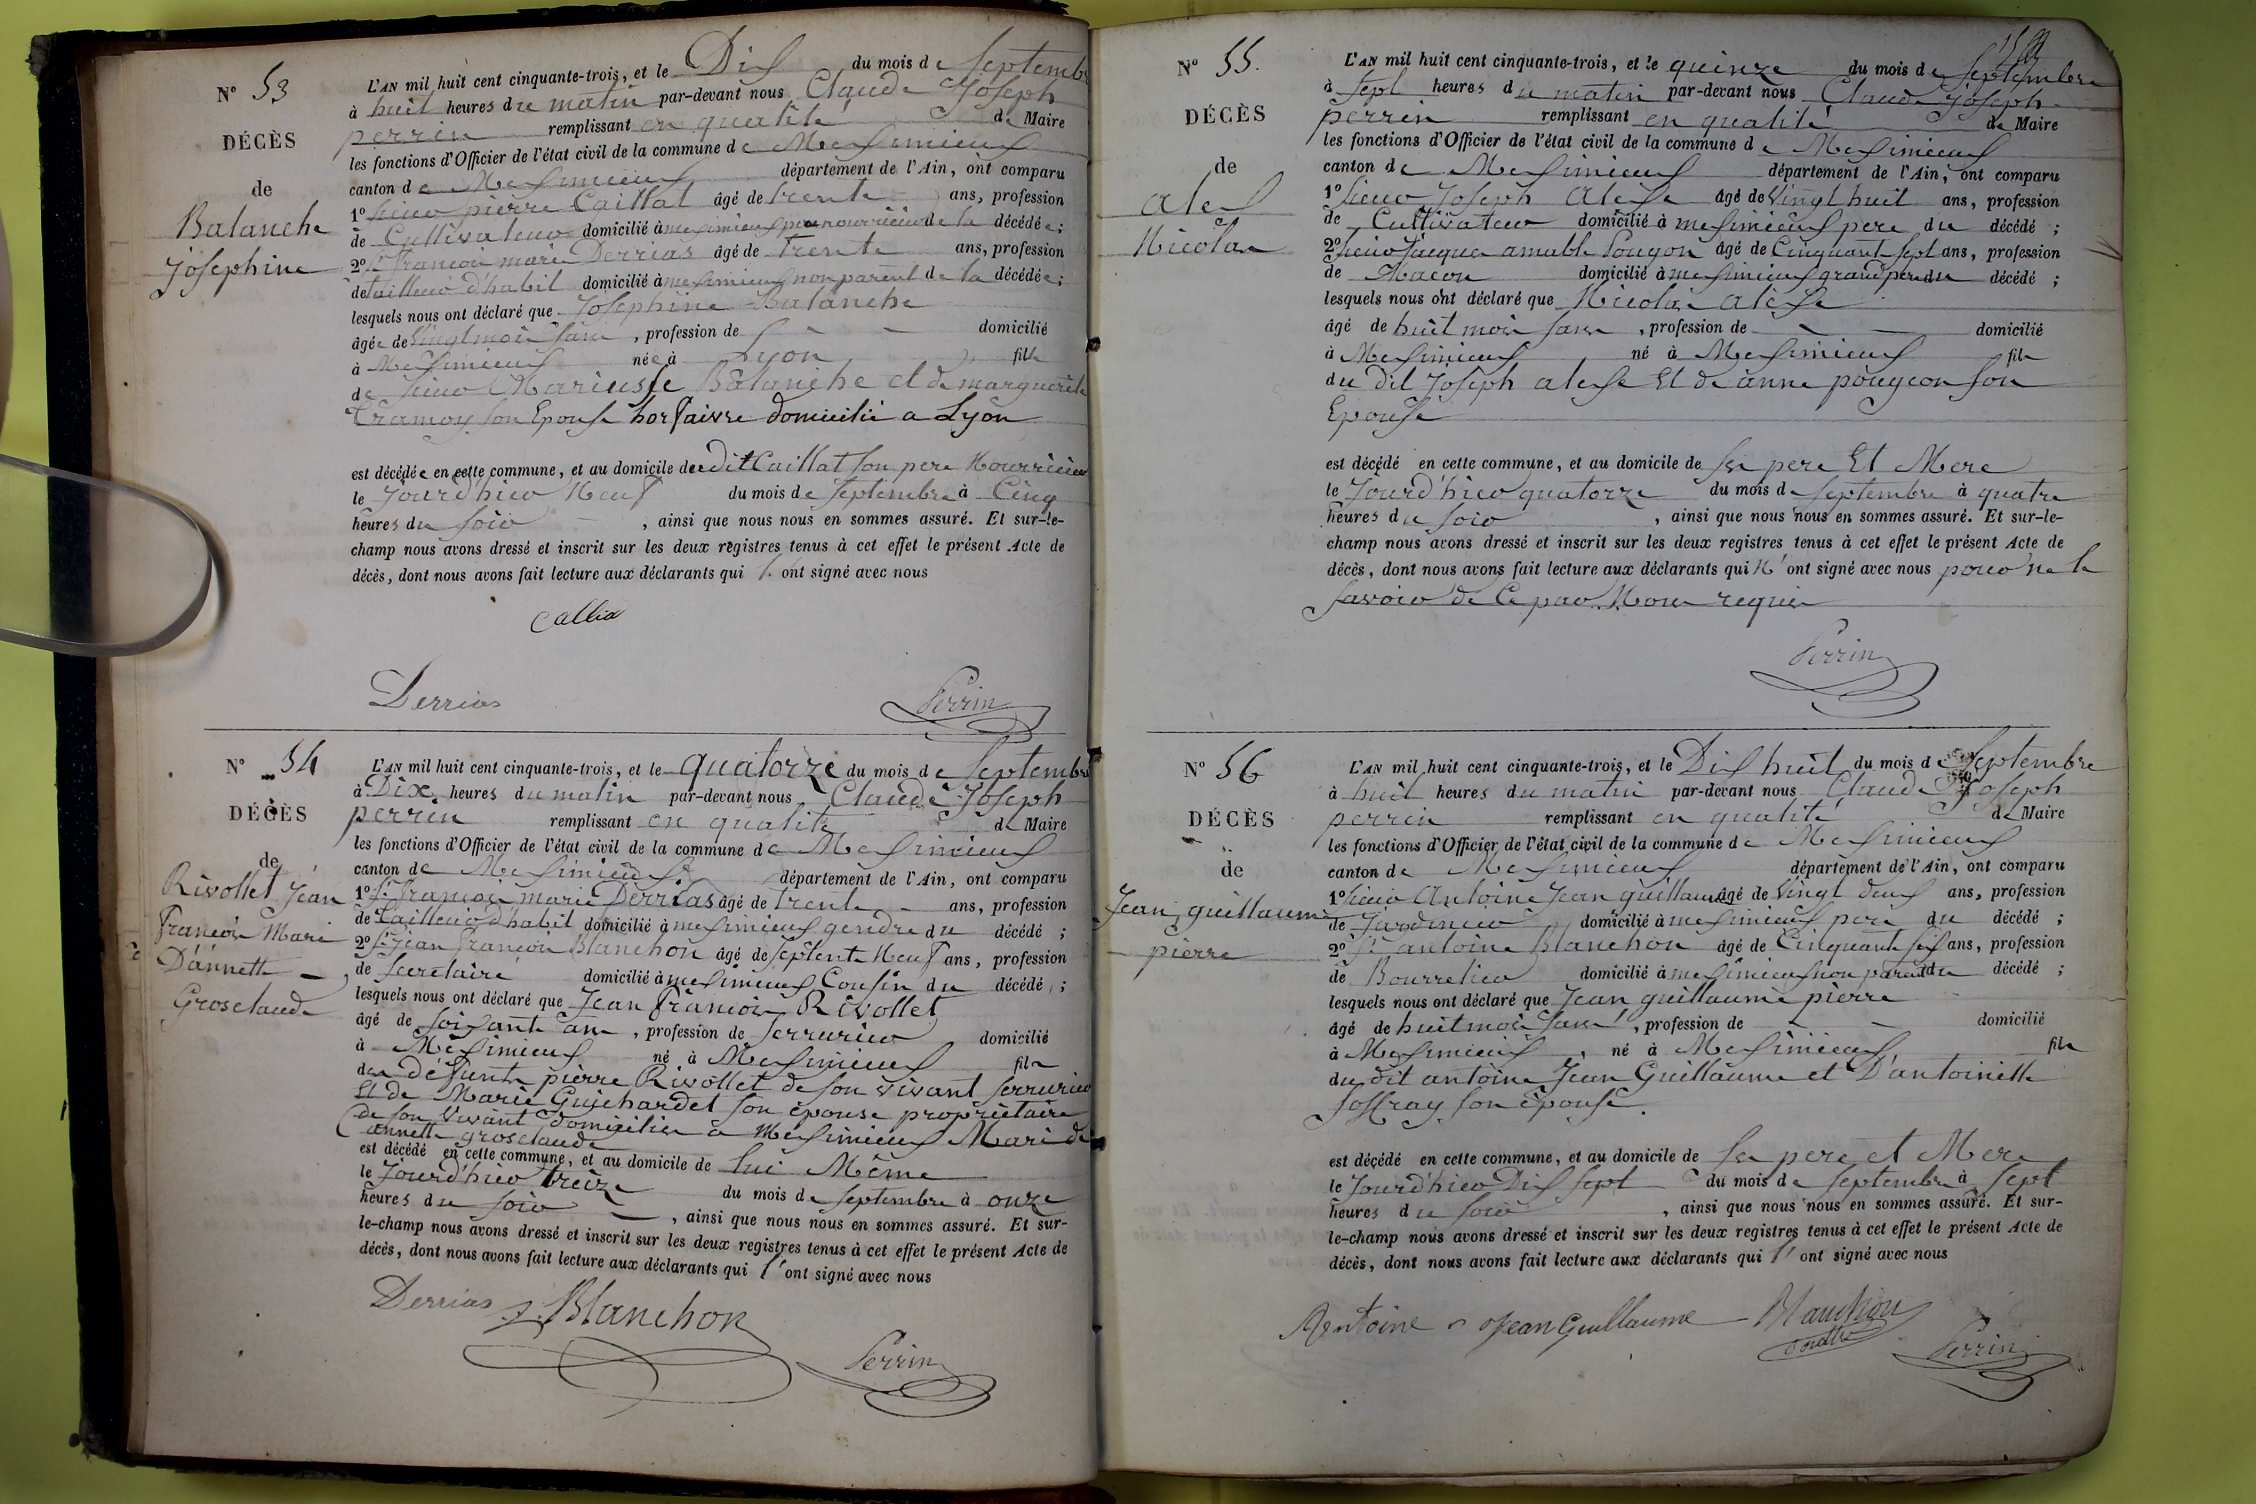 N° 53
DÉCÈS
de
Balanche
Josephine
L'AN mil huit cent cinquante-trois, et le Dix du mois de Septembre
à huit heures du matin par-devant nous Claude Joseph
perrin remplissant en qualité de Maire
les fonctions d'Officier de l'état civil de la commune de Meximieux
canton de Meximieux département de l'Ain, ont comparu
1° Sieur pierre Caillat âgé de trente ans, profession
de Cultivateur domicilié à meximieux pere nourricier de la décédée;
2° Sr francois marie Derrias âgé de trente ans, profession
de tailleur d'habit domicilié à meximieux non parent de la décédée;
lesquels nous ont déclaré que Josephine Balanche
âgée de vingt mois , profession de - - domicilié
à Meximieux née à Lyon fille
de Sieur Balanche et de marguerite
Tramoy son Epouse domicilié a Lyon
est décédée en cette commune, et au domicile du dit Caillat son pere Nourricier
le Jourd'hier Neuf du mois de Septembre à Cinq
heures du soir - , ainsi que nous nous en sommes assuré. Et sur-le-
champ nous avons dressé et inscrit sur les deux registres tenus à cet effet le présent Acte de
décès, dont nous avons fait lecture aux déclarants qui l' ont signé avec nous
Derrias Perrin
N° 54
DÉCÈS
de
Rivollet Jean
Francois Mari
D'annette
Grosclaude
L'AN mil huit cent cinquante-trois, et le quatorze du mois de Septembre
à Dix heures du matin par-devant nous Claude Joseph
perrin remplissant en qualité de Maire
les fonctions d'Officier de l'état civil de la commune de Meximieux
canton de Meximieux département de l'Ain, ont comparu
1° Sr francois marie Derrias âgé de trente - ans, profession
de tailleur d'habit domicilié à meximieux gendre du décédé ;
2° Sr Jean Francois Blanchon âgé de Septente Neuf ans, profession
de Secretaire domicilié à meximieux Cousin du décédé ;
lesquels nous ont déclaré que Jean Francois Rivollet
âgé de soixante ans , profession de Serrurier domicilié
à Meximieux né à Meximieux fils
des défunts pierre Rivollet de son vivant serrurier
Et de Marie Guichardet son épouse propriétaire
de son Vivant domiciliés a Meximieux Mari de
annette grosclaude
est décédé en cette commune, et au domicile de lui Même
le Jourd'hier treize du mois de septembre à onze
heures du soir - , ainsi que nous nous en sommes assuré. Et sur-
le-champ nous avons dressé et inscrit sur les deux registres tenus à cet effet le présent Acte de
décès, dont nous avons fait lecture aux déclarants qui l' ont signé avec nous
Derrias J. Blanchon
Perrin
N° 55.
DÉCÈS
de
Alex
Nicolas
L'AN mil huit cent cinquante-trois, et le quinze du mois de Septembre
à Sept heures du matin par-devant nous Claude Joseph
perrin remplissant en qualité de Maire
les fonctions d'Officier de l'état civil de la commune de Meximieux
canton de Meximieux département de l'Ain, ont comparu
1° Sieur Joseph Alexe âgé de Vingt huit ans, profession
de Cultivateur domicilié à meximieux pere du décédé ;
2° Sieur Jacque amable Pougon âgé de Cinquante Sept ans, profession
de Macon domicilié à meximieux grand pere du décédé ;
lesquels nous ont déclaré que Nicolas alexe
âgé de huit mois , profession de - - domicilié
à Meximieux né à Meximieux fils
du dit Joseph alexe Et de anne pougeon son
Epouse
est décédé en cette commune, et au domicile de ses pere Et Mere
le Jourd'hier quatorze du mois de septembre à quatre
heures du soir , ainsi que nous nous en sommes assuré. Et sur-le-
champ nous avons dressé et inscrit sur les deux registres tenus à cet effet le présent Acte de
décès, dont nous avons fait lecture aux déclarants qui N' ont signé avec nous pour ne le
savoir de Ce par Nous requis
Perrin
N° 56
DÉCÈS
de
Jean guillaume
pierre
L'AN mil huit cent cinquante-trois, et le Dix huit du mois de Septembre
à huit heures du matin par-devant nous Claude Joseph
perrin remplissant en qualité de Maire
les fonctions d'Officier de l'état civil de la commune de Meximieux
canton de Meximieux département de l'Ain, ont comparu
1° Sieur Antoine Jean guillaume âgé de Vingt deux ans, profession
de Jardinier domicilié à meximieux pere du décédé ;
2° Sr antoine Blanchon âgé de Cinquante six ans, profession
de Bourrelier domicilié à meximieux non parent du décédé ;
lesquels nous ont déclaré que Jean guillaume pierre
âgé de huit mois , profession de - - domicilié
à Meximieux , né à Meximieux fils
du dit antoine Jean Guillaume et D'antoinette
Joffray son épouse.
est décédé en cette commune, et au domicile de ses pere et Mere
le Jourd'hier Dix Sept du mois de septembre à Sept
heures du soir , ainsi que nous nous en sommes assuré. Et sur-
le-champ nous avons dressé et inscrit sur les deux registres tenus à cet effet le présent Acte de
décès, dont nous avons fait lecture aux déclarants qui l' ont signé avec nous
Antoine Jean Guillaume Blanchon
Perrin